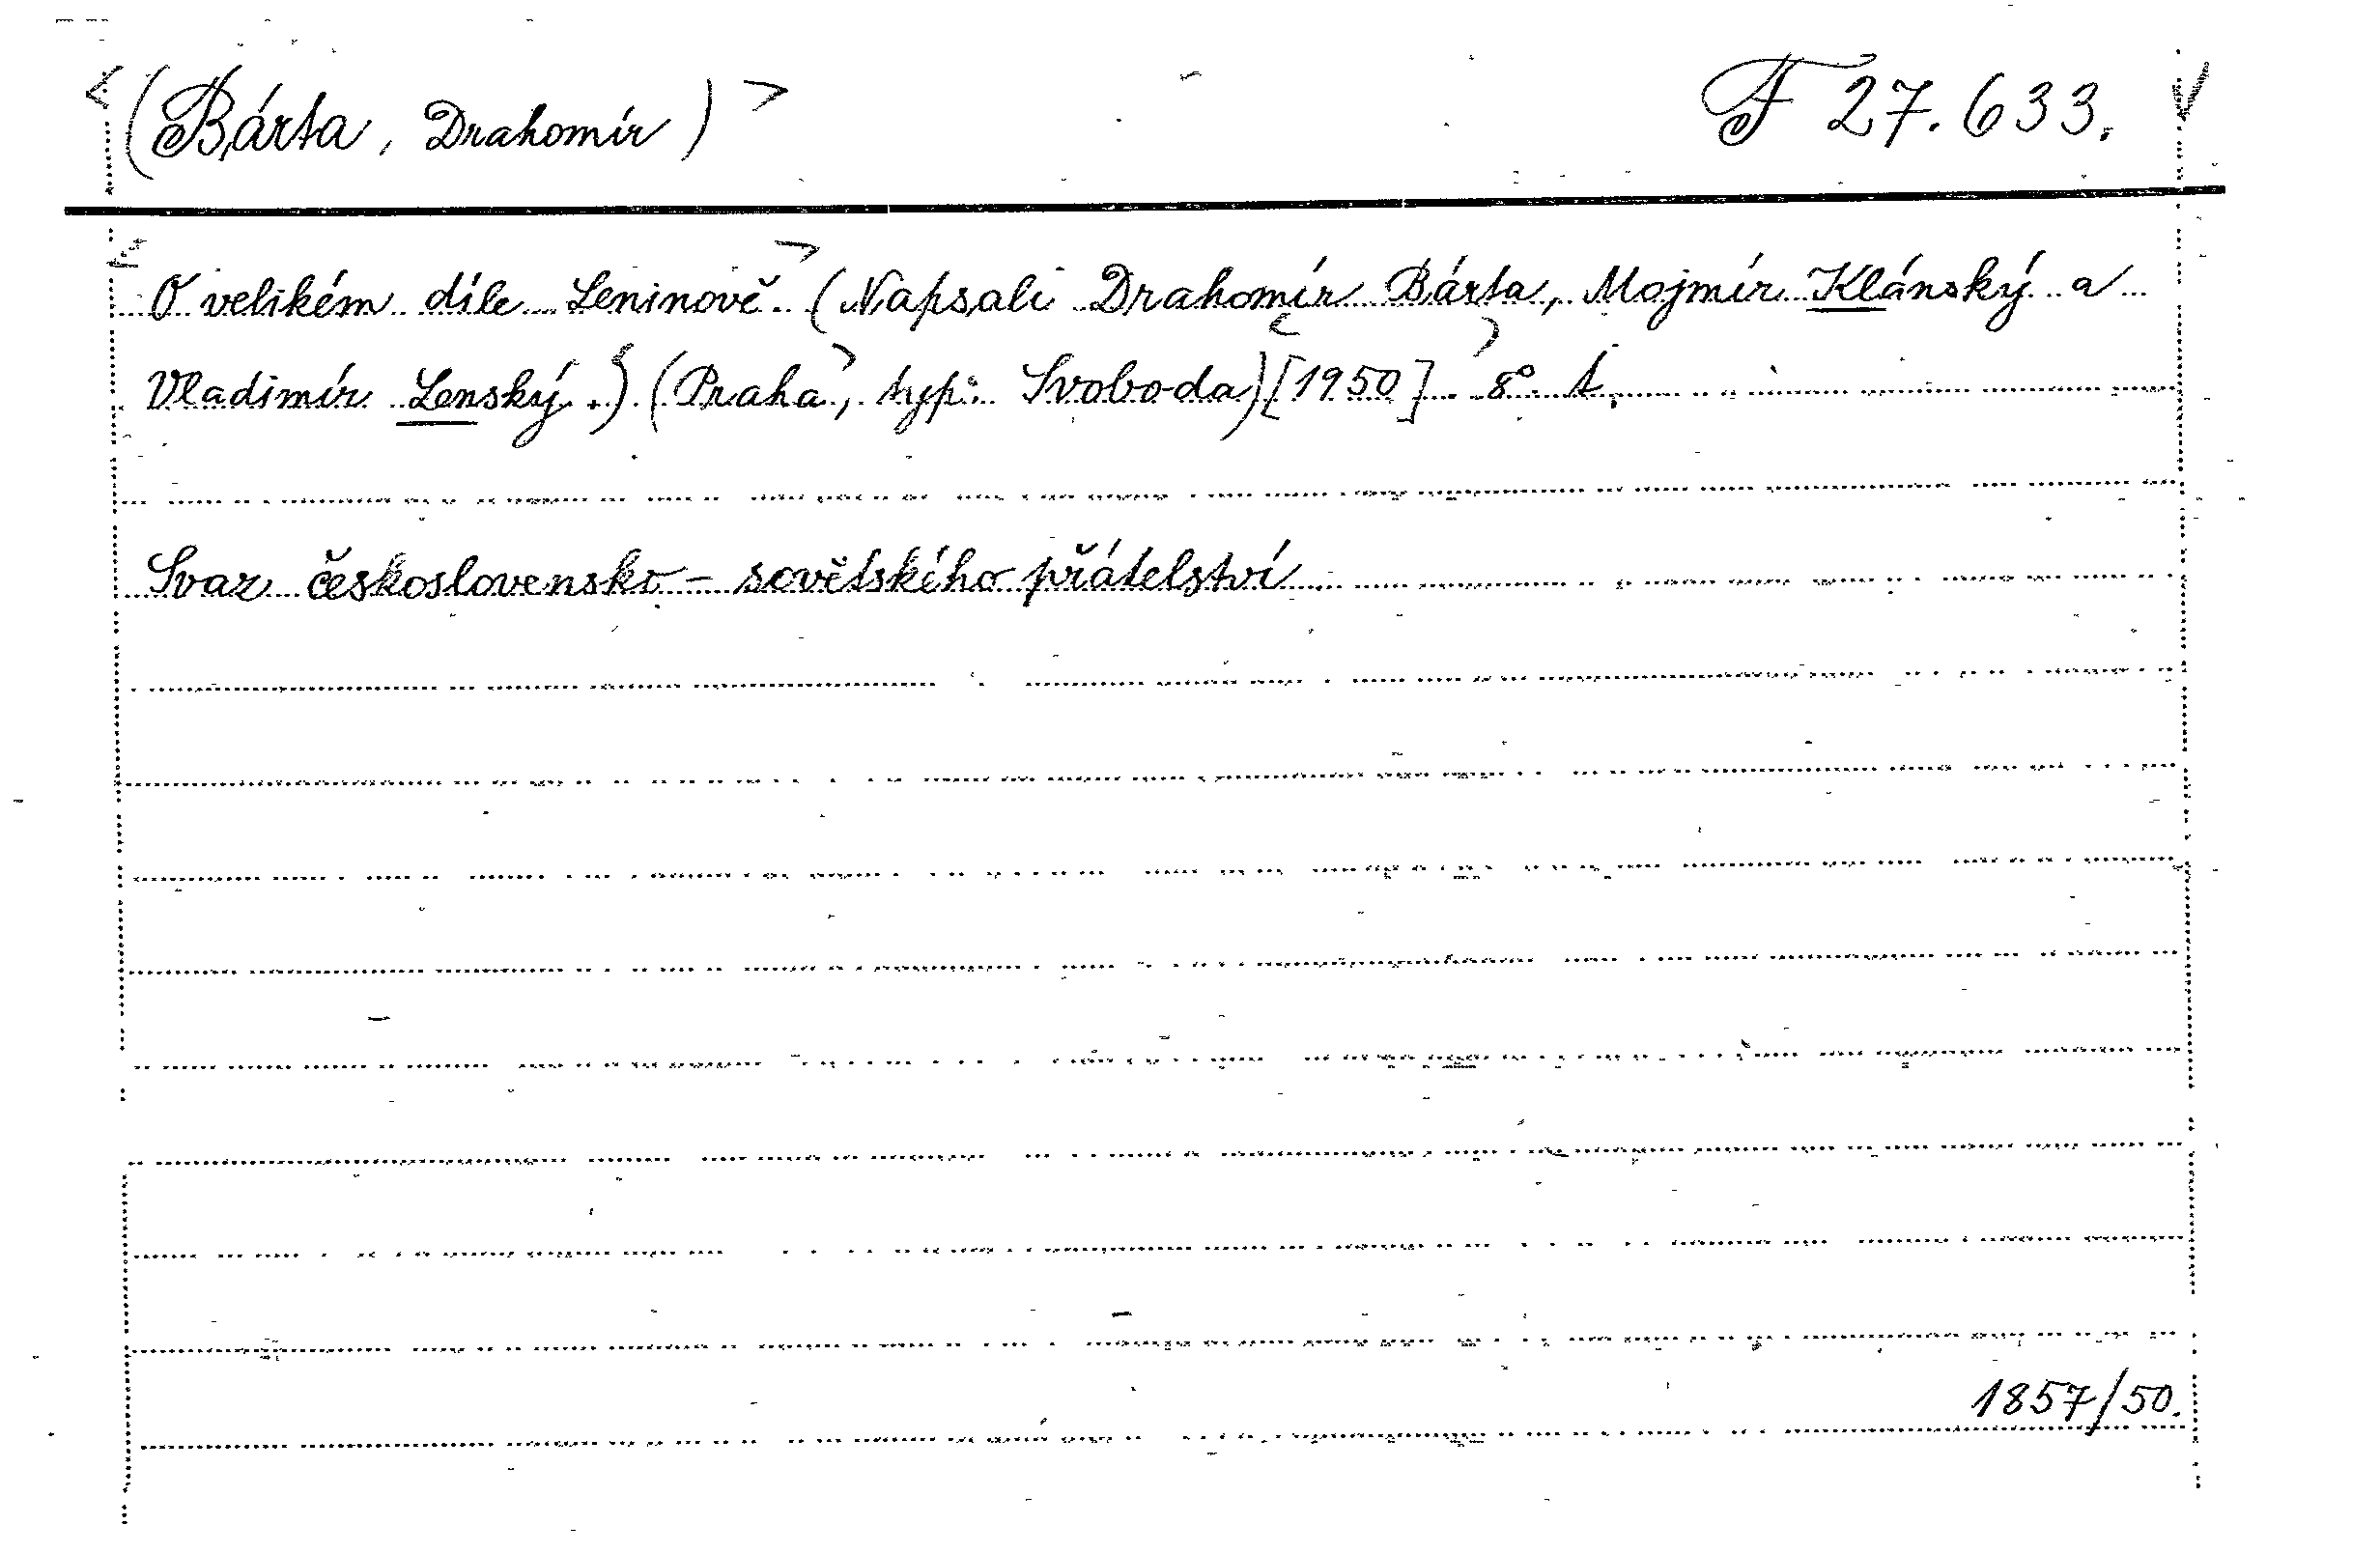 (Bárta, Drahomír) F 27.633.
O velikém díle Leninově. (Napsali Drahomír Bárta, Mojmír Klánský a
Vladimír Lenský.) (Praha, typ: Svoboda) [1950]. 8° t.
Svaz československo-sovětského přátelství
1857/50.